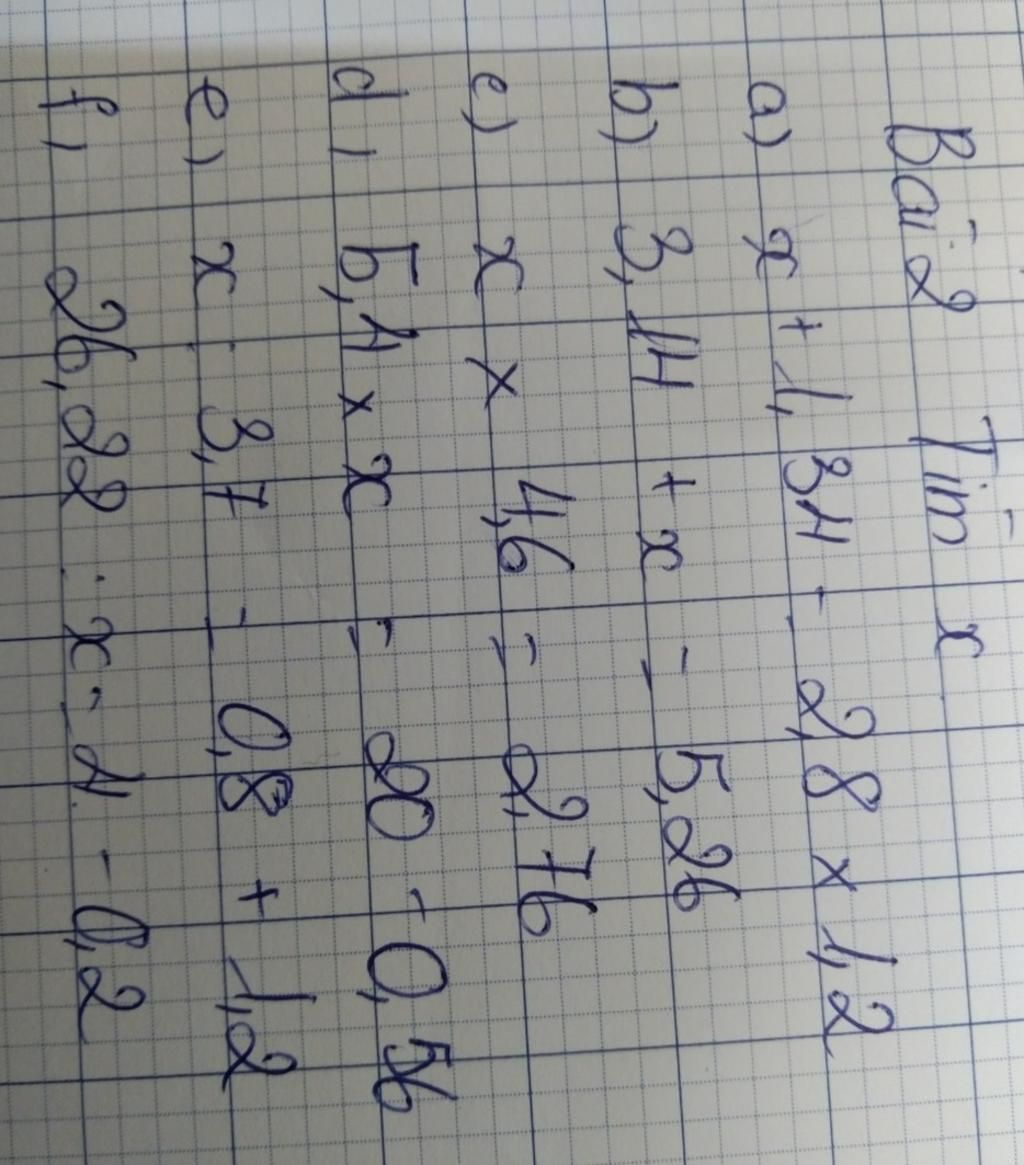 Bài 2 Tìm x
a) x + 1,34 = 2,8 x 1,2
b) 3,14 + x = 5,26
c) x x 4,6 = 2,76
d) 5,4 x x = 20 - 0,56
e) x : 3,7 = 0,8 + 1,2
f) 26,22 : x = 4 - 0,2